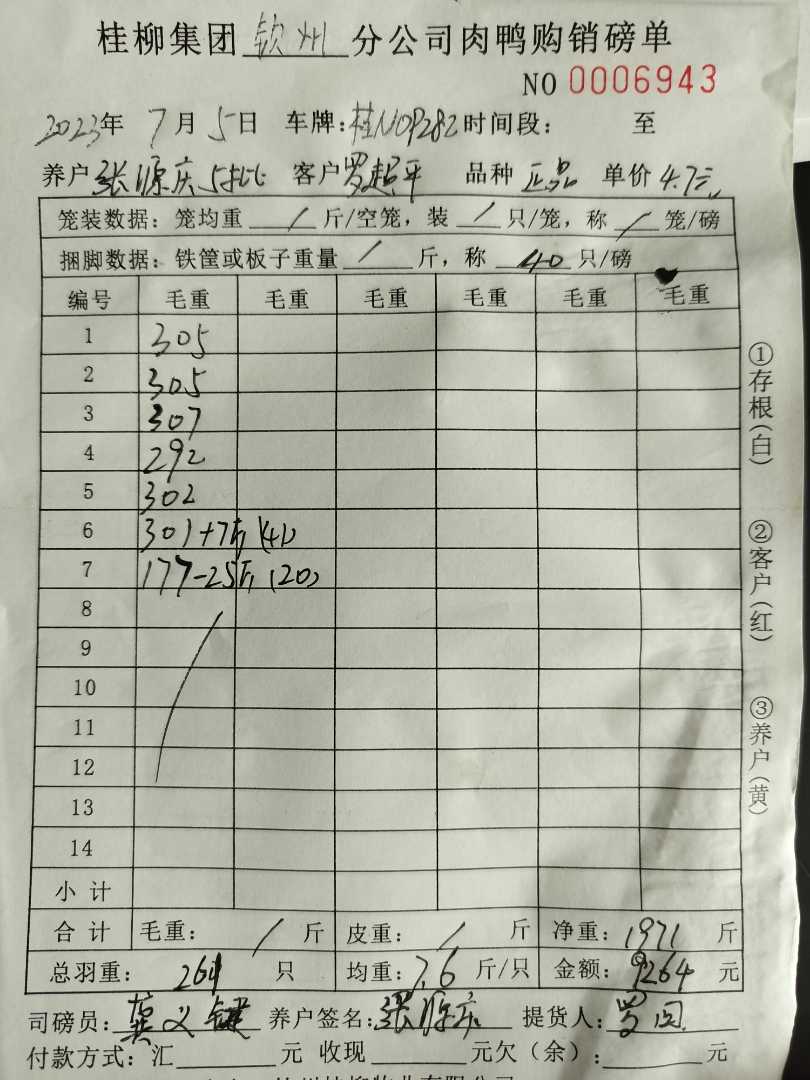 桂柳集团 钦州 分公司肉鸭购销磅单
NO 0006943
2023年 7月 5日 车牌:桂N0P282 时间段: 至
养户 张源庆 5批 客户 罗超平 品种 正品 单价 4.7元
笼装数据: 笼均重 / 斤/空笼, 装 / 只/笼, 称 / 笼/磅
捆脚数据: 铁筐或板子重量 / 斤, 称 40 只/磅
编号 毛重 毛重 毛重 毛重 毛重 毛重
1 305
2 305
3 307
4 292
5 302
6 301+7斤 (41)
7 177-25斤 (20)
8
9
10
11
12
13
14
小计
合计 毛重: / 斤 皮重: / 斤 净重: 1971 斤
总羽重: 261 只 均重: 7.6 斤/只 金额: 9264 元
司磅员: 义键 养户签名: 张源庆 提货人: 罗
付款方式: 汇 元 收现 元欠(余): 元
①存根(白)
②客户(红)
③养户(黄)